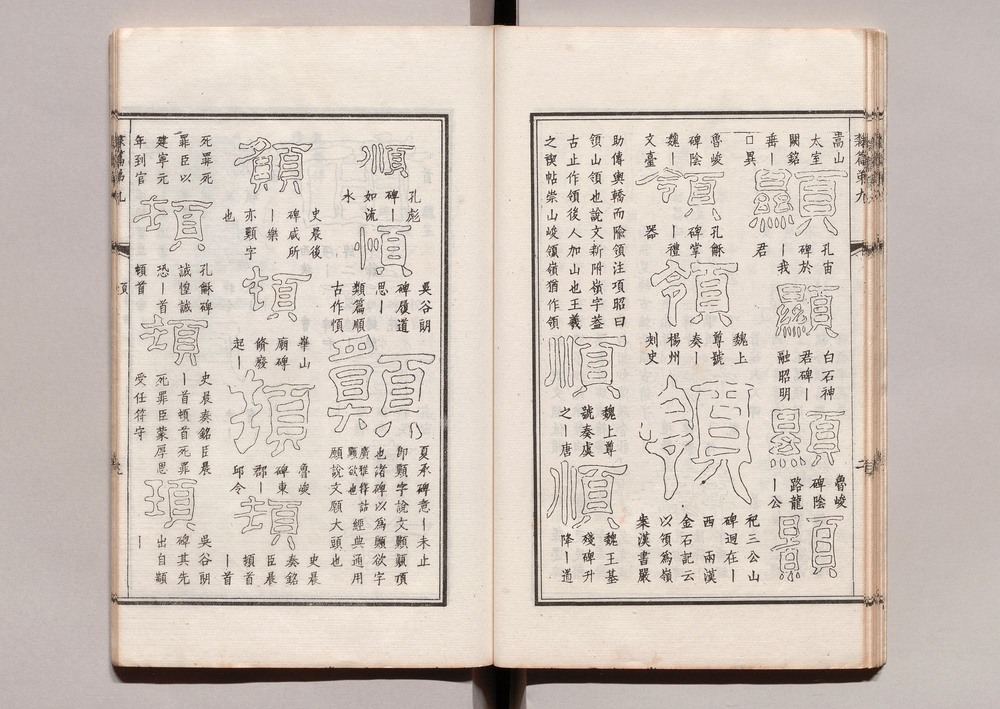 隸篇第九
嵩山
太室
闕銘
番｜
顯
孔宙
碑於
｜我
君
顯
白石神
君碑｜
融昭明
顯
魯峻
碑陰
路龍
｜公
顯
□異
魯峻
碑陰
魏｜
文臺
領
孔龢
碑掌
｜禮
器
領
魏上
尊號
奏｜
楊州
刺史
領
祀三公山
碑迴在｜
西　兩漢
金石記云
以領為嶺
案漢書嚴
助傳輿轎而隃領注項昭曰
領山領也說文新附嶺字葢
古止作領後人加山也王羲
之稧帖崇山峻領嶺猶作領
順
魏上尊
號奏虞
之｜唐
順
魏王基
殘碑升
降｜道
順
孔彪
碑｜
如流
水
順
吳谷朗
碑履道
思｜
類篇順
古作愼
顠
夏承碑意｜未止
即顠字說文顠顛頂
也諸碑以為顠欲字
廣雅釋詁
顠欲也
經典通用
願說文願大頭也
顠
史晨後
碑咸所
｜樂
亦顠字
也
頓
華山
廟碑
脩廢
起｜
頓
魯峻
碑東
郡｜
邱令
頓
史晨
奏銘
臣晨
頓首
｜首
死罪死
罪臣以
建寧元
年到官
頓
孔龢碑
誠惶誠
恐｜首
頓首
頓
史晨奏銘臣晨
｜首頓首死罪
死罪臣蒙厚恩
受任符守
頊
吳谷朗
碑其先
出自顓
｜
隸篇第九